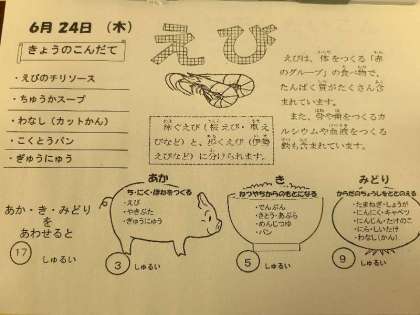 6月24日（木）
きょうのこんだて
・えびのチリソース
・ちゅうかスープ
・わなし（カットかん）
・こくとうパン
・ぎゅうにゅう
えび
えびは、体をつくる「赤
のグループ」の食べ物で、
たんぱく質がたくさん含
まれています。
また、骨や歯をつくるカ
ルシウムや血液をつくる
鉄も含まれています。
泳ぐえび（桜えび・車え
びなど）と、歩くえび（伊勢
えびなど）に分けられます。
あか・き・みどり
を
あわせると
17 しゅるい
あか
ち・にく・ほねをつくる
・えび
・やきぶた
・ぎゅうにゅう
3 しゅるい
き
ねつやちからのもとになる
・でんぷん
・さとう・あぶら
・めんじつゆ
・パン
5 しゅるい
みどり
からだのちょうしをととのえる
・たまねぎ・しょうが
・にんにく・キャベツ
・にんじん・たけのこ
・にら・しいたけ
・わなし(かん)
9 しゅるい